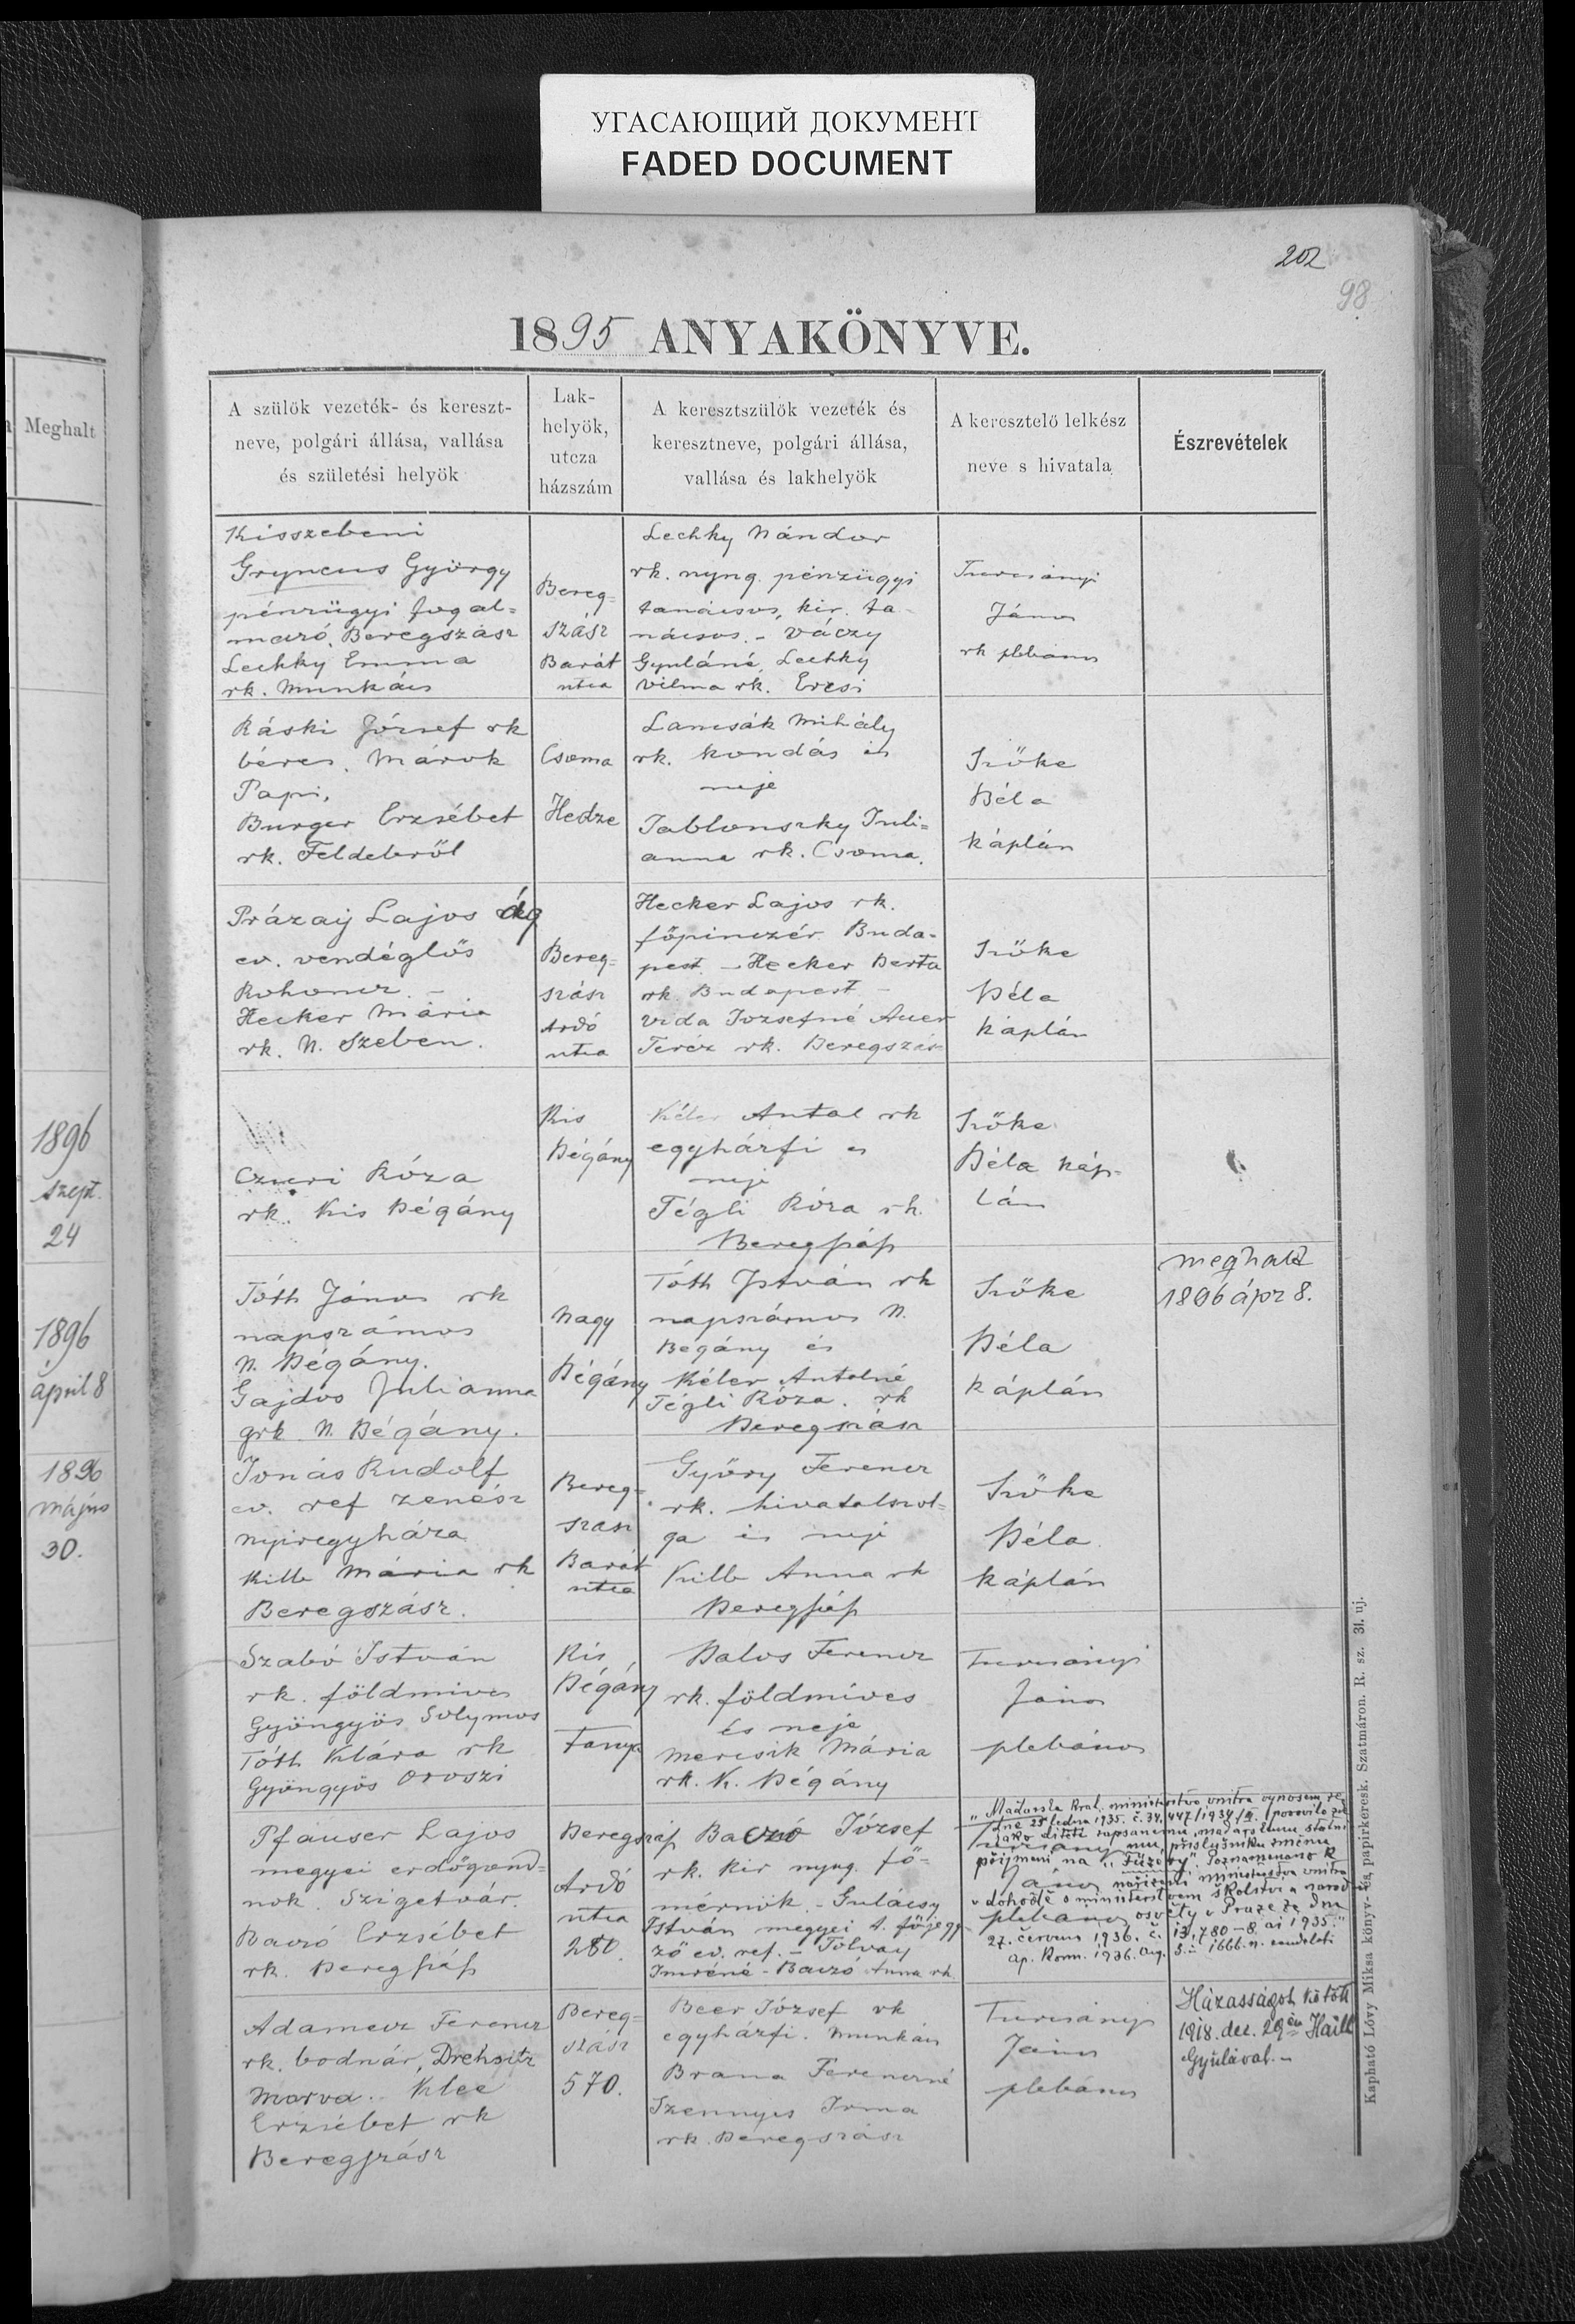 УГАСАЮЩИЙ ДОКУМЕНТ
FADED DOCUMENT
202
98
1895 ANYAKÖNYVE.
Meghalt
A szülők vezeték- és kereszt-
neve, polgári állása, vallása
és születési helyök
Lak-
helyök,
utcza
házszám
A keresztszülők vezeték és
keresztneve, polgári állása,
vallása és lakhelyök
A keresztelő lelkész
neve s hivatala
Észrevételek
Kisszebeni
Gryneus György
pénzügyi fogal=
mazó, Beregszász
Lechky Emma
rk. Munkács
Bereg=
szász
Barát
utca
Lechky Nándor
rk. nyug. pénzügyi
tanácsos, kir. ta-
nácsos. - Váczy
Gyuláné, Lechky
Vilma rk. Ercsi
Turcsányi
János
rk plébános
Ráski József rk
béres. Márok
Papi,
Burger Erzsébet
rk. Feldebről
Csoma
Hedze
Lancsák Mihály
rk. kondás és
neje
Jablonszky Juli=
anna rk. Csoma.
Szőke
Béla
káplán
Prázay Lajos ág
ev. vendéglős
Rohoncz. -
Hecker Mária
rk. N. Szeben.
Bereg=
szász
Ardó
utca
Hecker Lajos rk.
főpinczér Buda-
pest. - Hecker Berta
rk. Budapest -
Vida Jozsefné Auer
Teréz rk. Beregszász
Szőke
Béla
káplán
1896
szept.
24
Czueri Róza
rk. Kis Bégány
Kis
Bégány
Kéler Antal rk
egyházfi és
neje
Tégli Róza rk.
Beregszász
Szőke
Béla káp-
lán
1896
április 8
Tóth János rk
napszámos
N. Bégány.
Gajdos Julianna
grk N. Bégány.
Nagy
Bégány
Tóth István rk
napszámos N.
Begány és
Kéler Antalné
Tégli Róza. rk
Beregszász
Szőke
Béla
káplán
meghalt
1896 ápr 8.
1896
május
30.
Jonás Rudolf
ev. ref zenész
Nyiregyháza
Kille Mária rk
Beregszász.
Bereg=
szasz
Barát
utca
Győry Ferencz
rk. hivatalszol=
ga és neje
Kille Anna rk
Beregszász
Szőke
Béla
káplán
Szabó István
rk. földmives
Gyöngyös Solymos
Tóth Klára rk
Gyöngyös Oroszi
Kis
Bégány
Tanya
Balos Ferencz
rk. földmíves
és neje
Mercsik Mária
rk. K. Bégány
Turcsányi
János
plébános
Pfauser Lajos
megyei erdőgond=
nok. Szigetvár.
Baczó Erzsébet
rk. Beregszász
Beregszász
Ardó
utca
280.
Baczó József
rk. kir nyug. fő-
mérnök. - Gulácsy
István megyei t. főjegy-
ző ev. ref. - Tolvay
Imréné - Baczó Anna rk
János
plébános
"Maďarské Král. ministerstvo vnitra výnosem ze
dne 25 ledna 1935. č. 34,447/1934/
příjmení na "Füzéry". Poznamenáno k
nařízení ministerstva vnitra
v dohodě s ministerstvem školství a národní
osvěty v Praze ze dne
27. června 1936. č. 13,780-8 ai 1935."
Adamecz Ferencz
rk. bodnár, Drehsitz
Morva. Klee
Erzsébet rk
Beregszász
Bereg=
szász
570.
Beer József rk
egyházfi. Munkács
Brana Ferenczné
Szennyes Irma
rk. Beregszász
Turcsányi
János
plébános
Házasságot kötött
1918. dec. 29én Haill
Gyulával. -
Kapható Lővy Miksa könyv- és papirkeresk. Szatmáron. R. sz. 31. uj.